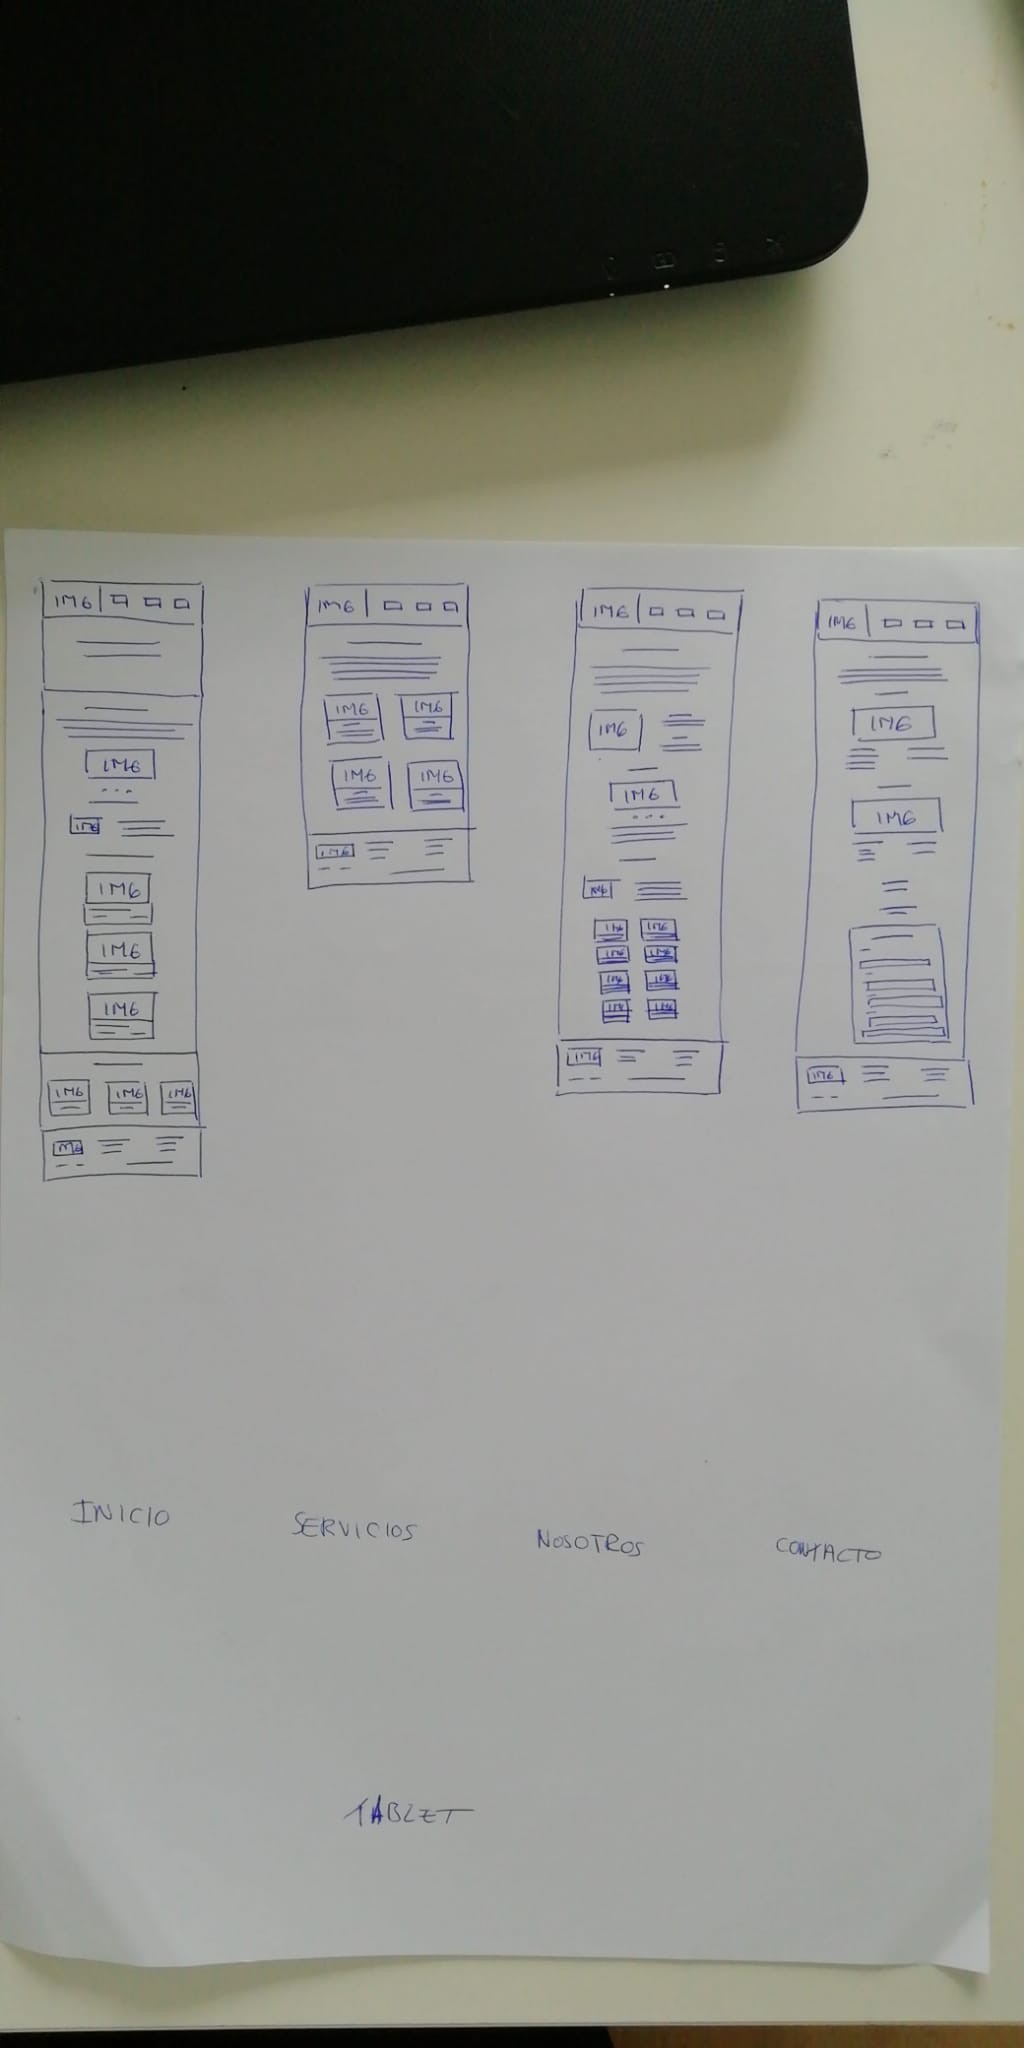 IMG IMG IMG IMG
IMG
IMG
IMG
IMG
IMG
IMG IMG IMG
IMG
IMG IMG
IMG IMG
IMG
IMG
IMG
IMG
IMG IMG
IMG IMG
IMG IMG
IMG IMG
IMG
IMG
IMG
IMG
INICIO SERVICIOS NOSOTROS CONTACTO
TABLET